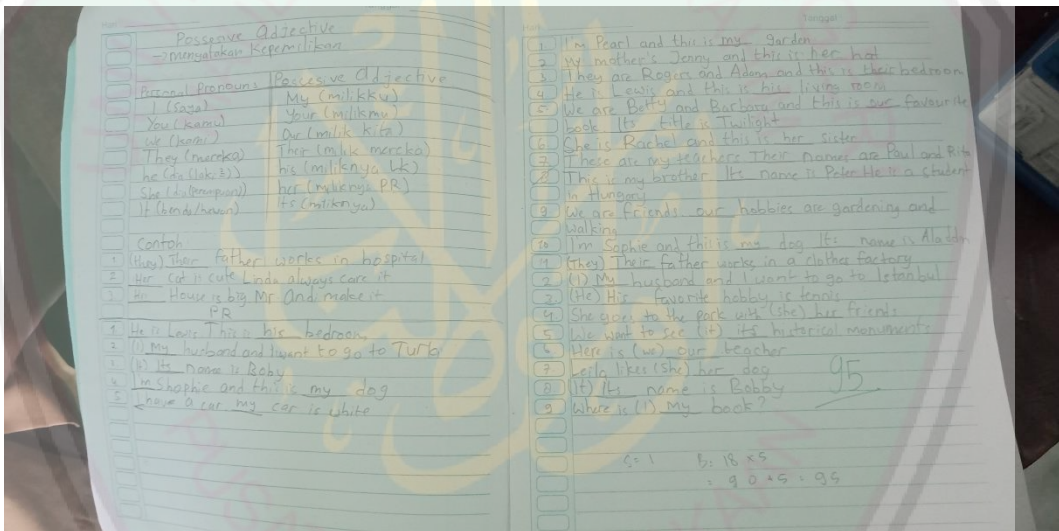 Possesive Adjective
→ menyatakan Kepemilikan
Personal Pronouns Possesive Adjective
I (saya) My (milikku)
You (kamu) Your (milikmu)
We (kami) Our (milik kita)
They (mereka) Their (milik mereka)
he (dia (laki2)) his (miliknya Lk)
She (dia (perempuan)) her (miliknya PR)
It (benda/hewan) Its (miliknya)
Contoh
1 (they) Their father works in hospital
2 Her cat is cute Linda always care it
3 House is big Mr Andi make it
PR
1 He is Lewis This is his bedroom
2 (I) My husband and I want to go to Turky
3 (It) Its name is Boby
4 I'm Shophie and this is my dog
5 I have a car my car is white
Tanggal:
1 I'm Pearl and this is my garden
2 My mother's Jenny and this is her hat
3 They are Rogers and Adam and this is their bedroom
4 He is Lewis and this is his living room
5 We are Betty and Barbara and this is our favourite
book. Its title is Twilight
6 She is Rachel and this is her sister
7 These are my teachers Their names are Paul and Rita
8 This is my brother Its name is Peter He is a student
in Hungary
9 We are friends our hobbies are gardening and
walking
10 I'm Sophie and this is my dog Its name is Aladdin
1 (They) Their father works in a clothes factory
2 (I) My husband and I want to go to Istanbul
3 (He) His favorite hobby is tennis
4 She goes to the park with (she) her friends
5 We want to see (it) its historical monuments
6 Here is (we) our teacher
7 Leila likes (she) her dog
8 (It) Its name is Bobby
9 Where is (I) My book?
95
S = 1 B = 18 x 5
= 90 + 5 = 95